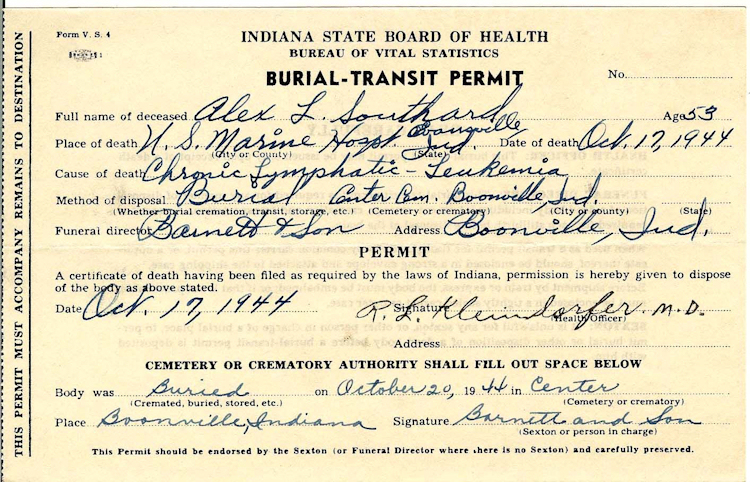 THIS PERMIT MUST ACCOMPANY REMAINS TO DESTINATION
Form V. S. 4
INDIANA STATE BOARD OF HEALTH
BUREAU OF VITAL STATISTICS
BURIAL-TRANSIT PERMIT
No.
Full name of deceased Alex L. Southard Age 53
Place of death U. S. Marine Hospt. Evansville Ind. Date of death Oct. 17, 1944
(City or County) (State)
Cause of death Chronic Lymphatic-Leukemia
Method of disposal Burial Center Cem. Boonville, Ind.
(Whether burial cremation, transit, storage, etc.) (Cemetery or crematory) (City or county) (State)
Funeral director Barnett & Son Address Boonville, Ind.
PERMIT
A certificate of death having been filed as required by the laws of Indiana, permission is hereby given to dispose
of the body as above stated.
Date Oct. 17, 1944 Signature R. L. Kleindorfer M.D.
(Health Officer)
Address
CEMETERY OR CREMATORY AUTHORITY SHALL FILL OUT SPACE BELOW
Body was Buried on October 20, 1944 in Center
(Cremated, buried, stored, etc.) (Cemetery or crematory)
Place Boonville, Indiana Signature Barnett and Son
(Sexton or person in charge)
This Permit should be endorsed by the Sexton (or Funeral Director where there is no Sexton) and carefully preserved.